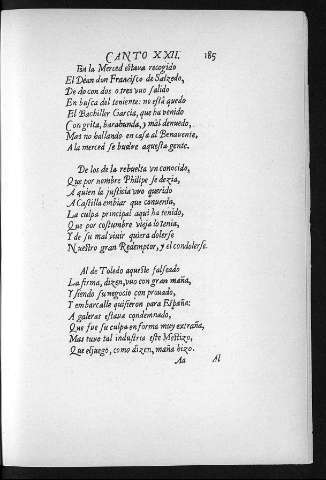 CANTO XXII. 185
En la Merced estava recogido
El Dean don Francisco de Salzedo,
De do con dos o tres vuo salido
En busca del teniente: no està quedo
El Bachiller Garcia, que ha venido
Con grita, barahunda, y mal denuedo,
Mas no hallando en casa al Benavente,
A la merced se buelve aquesta gente.
De los de la rebuelta vn conocido,
Que por nombre Philipe se dezia,
A quien la justicia vvo querido
A Castilla embiar que convenia,
La culpa principal aqui ha tenido,
Que por costumbre vieja lo tenia,
Y de su mal vivir quiera dolerse
Nuestro gran Redemptor, y el condolerse.
Al de Toledo aqueste falseado
La firma, dizen, vuo con gran maña,
Y siendo su negocio con prouado,
Y embarcalle quisieron para España:
A galeras estava condemnado,
Que fue su culpa en forma muy extraña,
Mas tuvo tal industria este Mestizo,
Que el juego, como dizen, maña hizo.
Aa Al